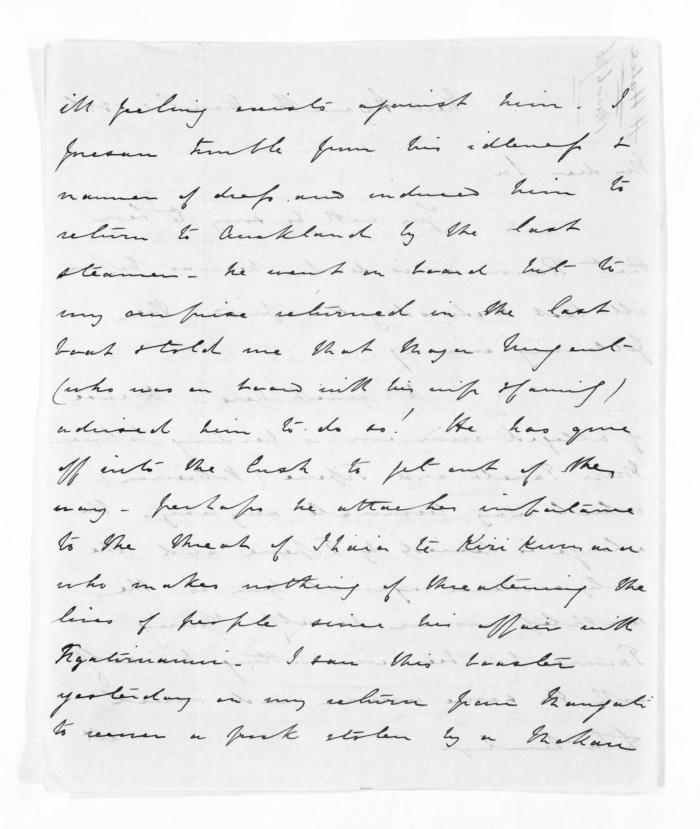 ill feeling exists against him. I
foresaw trouble from his idleness &
manner of dress and induced him to
return to Auckland by the last
steamer - he went on board but to
my surprise returned in the last
boat & told me that Major Nugent
(who was on board with his wife & family)
advised him to do so! He has gone
off into the bush to get out of the
way - perhaps he attaches importance
to the threat of Ihaia te Kirikumara
who makes nothing of threatening the
lives of people since his affair with
I saw this boaster
yesterday on my return from Mangati
to recover a stolen by a